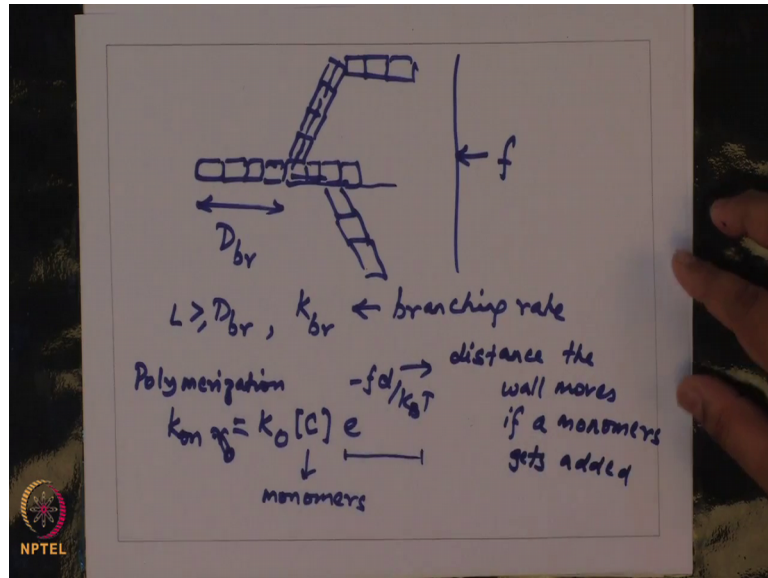 f
D_br
L ≥, D_br , k_br ← branching rate
Polymerization
k_on = k_0 [C] e^{-fd/k_BT} → distance the
wall moves
if a monomers
gets added
monomers
NPTEL